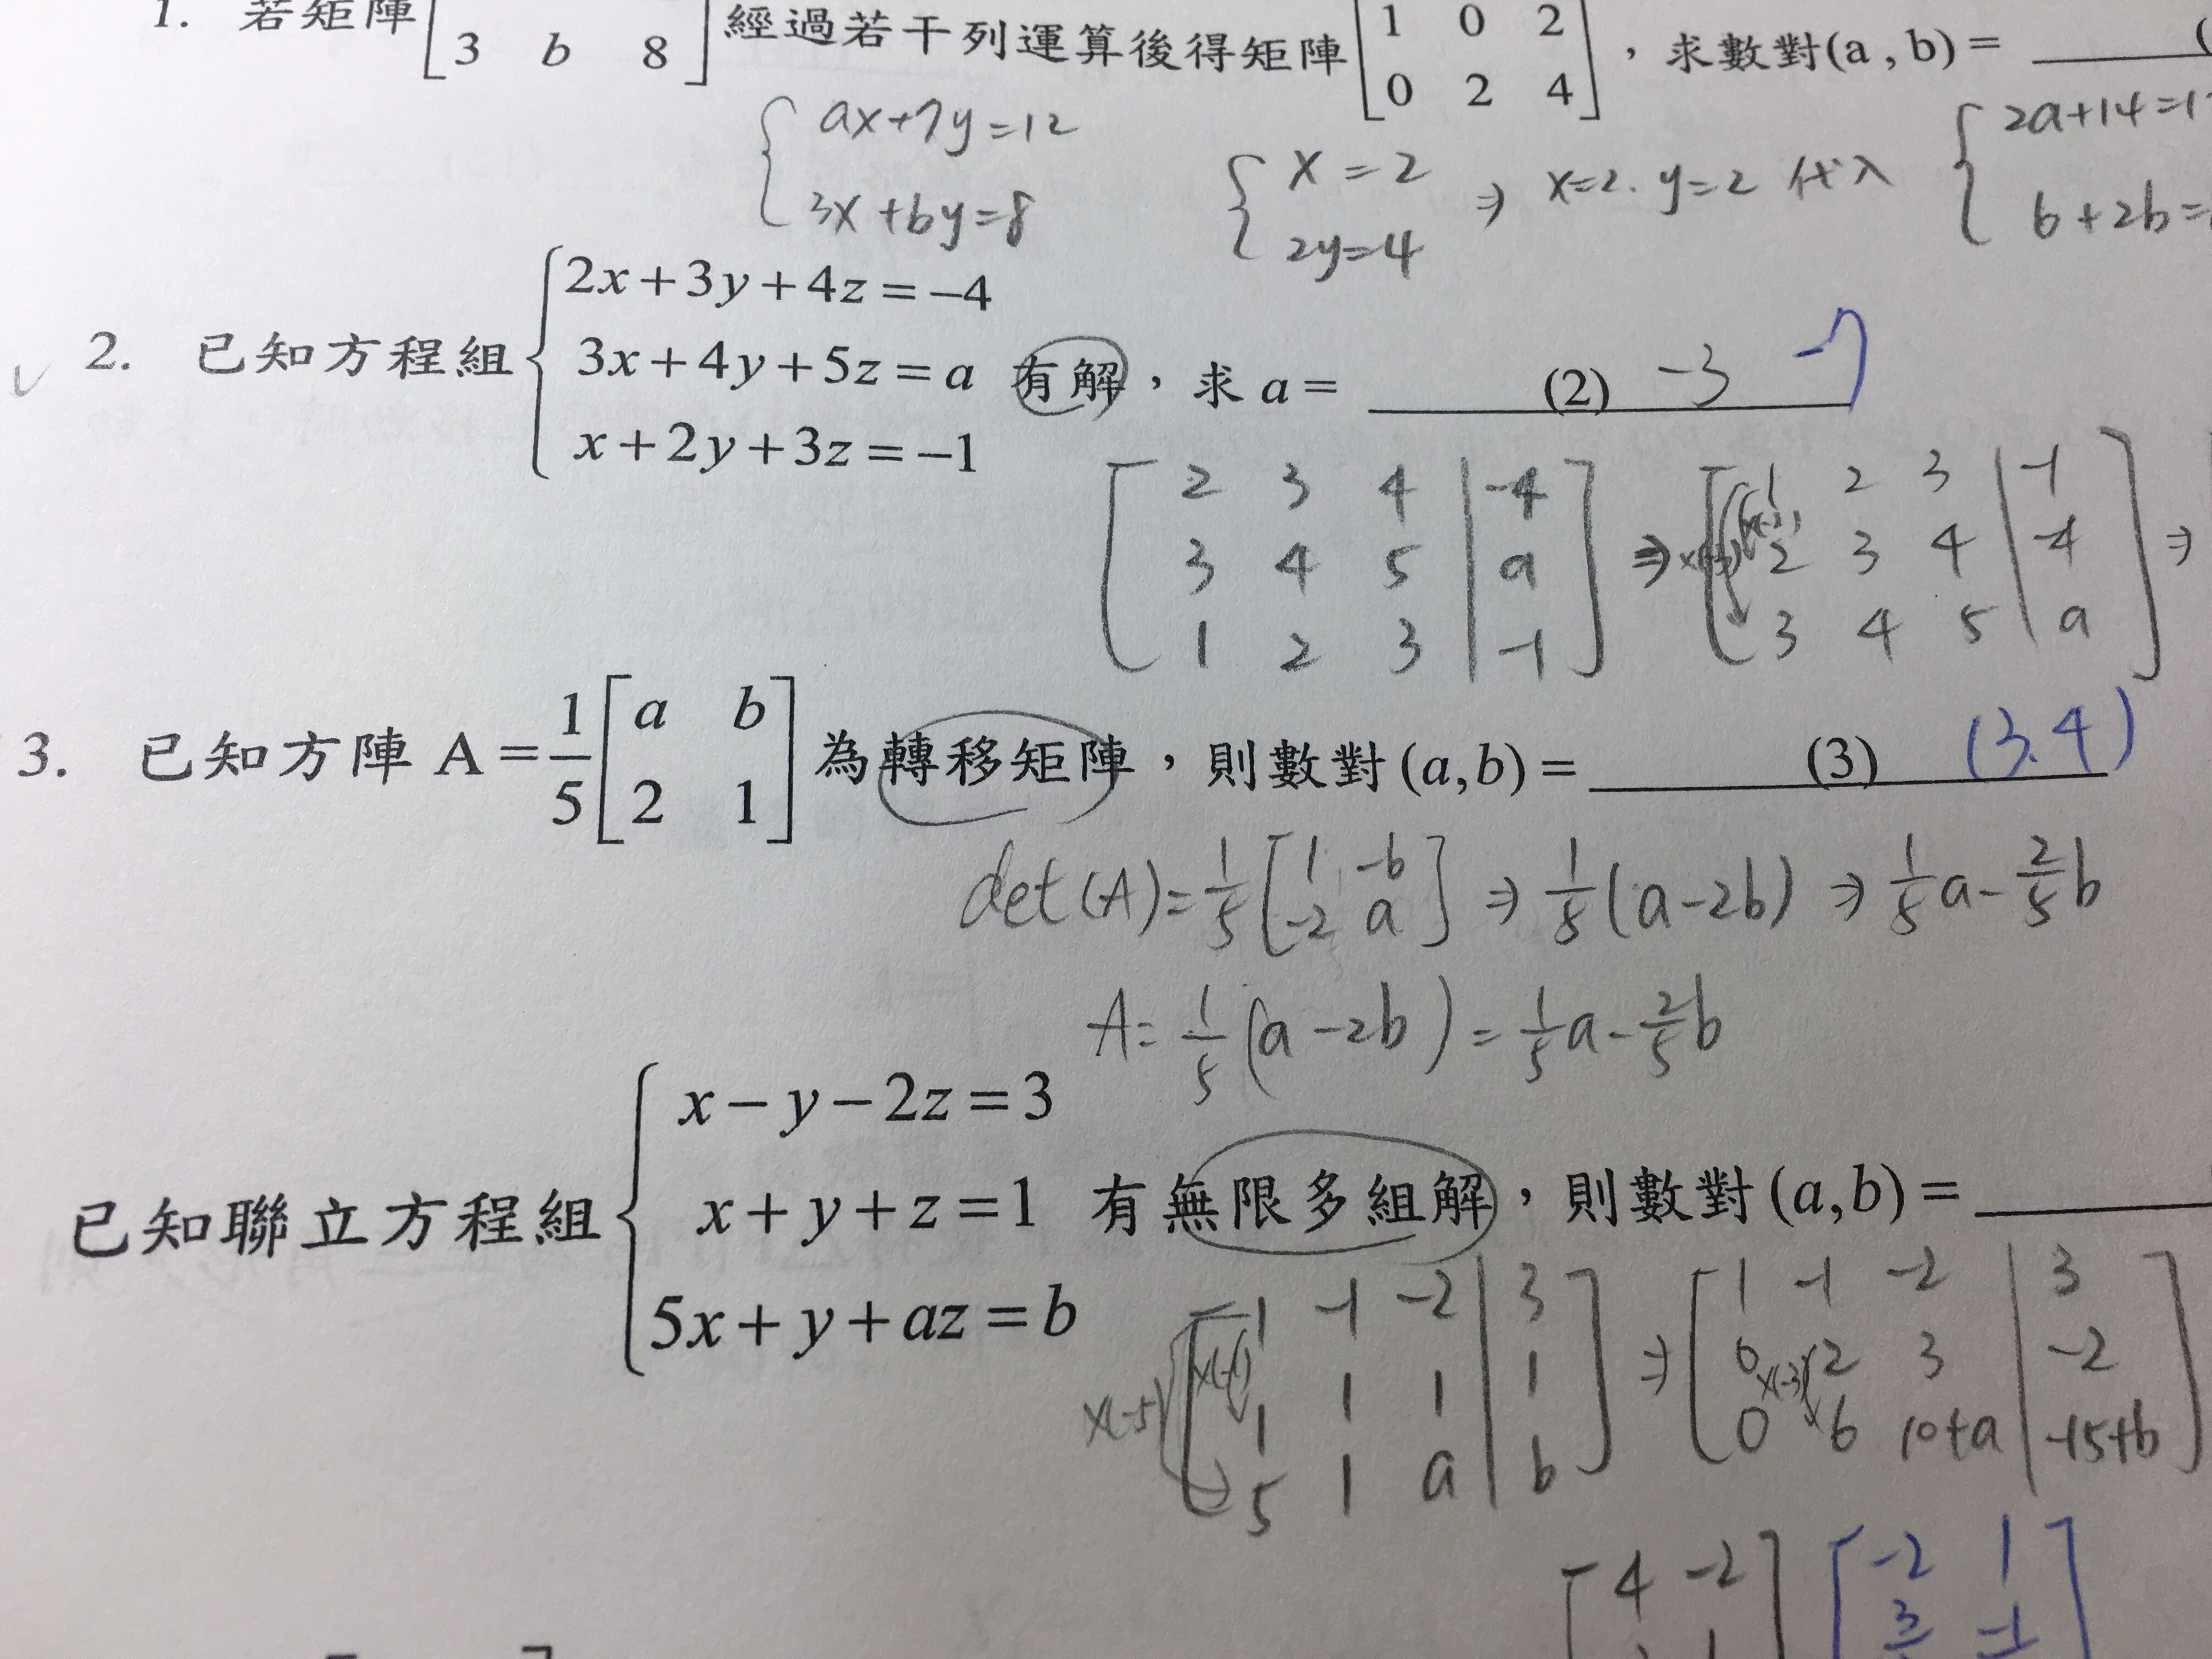 1. 若矩陣[3 b 8]經過若干列運算後得矩陣[1 0 2
0 2 4],求數對(a , b) =
{ax+7y=12
3x+by=8
{x=2
2y=4
⇒ x=2. y=2 代入
{2a+14=1
6+2b=
2. 已知方程組{2x+3y+4z=−4
3x+4y+5z=a
x+2y+3z=−1
有解,求 a = (2) -3 -7
[2 3 4 | -4
3 4 5 | a
1 2 3 | -1]
⇒ [1 2 3 | -1
2 3 4 | -4
3 4 5 | a] ⇒
3. 已知方陣 A = 1/5 [a b
2 1] 為轉移矩陣,則數對(a,b) = (3) (3.4)
det(A)= 1/5 [1 -b
-2 a] ⇒ 1/5 (a-2b) ⇒ 1/5 a - 2/5 b
A= 1/5 (a-2b) = 1/5 a - 2/5 b
已知聯立方程組{x−y−2z=3
x+y+z=1
5x+y+az=b
有無限多組解,則數對(a,b) =
x(-5) x(-1)
[1 -1 -2 | 3
1 1 1 | 1
5 1 a | b]
⇒ [1 -1 -2 | 3
0 2 3 | -2
0 6 10+a | -15+b]
x(-3)
[4 -2]
[-2 1
-1]